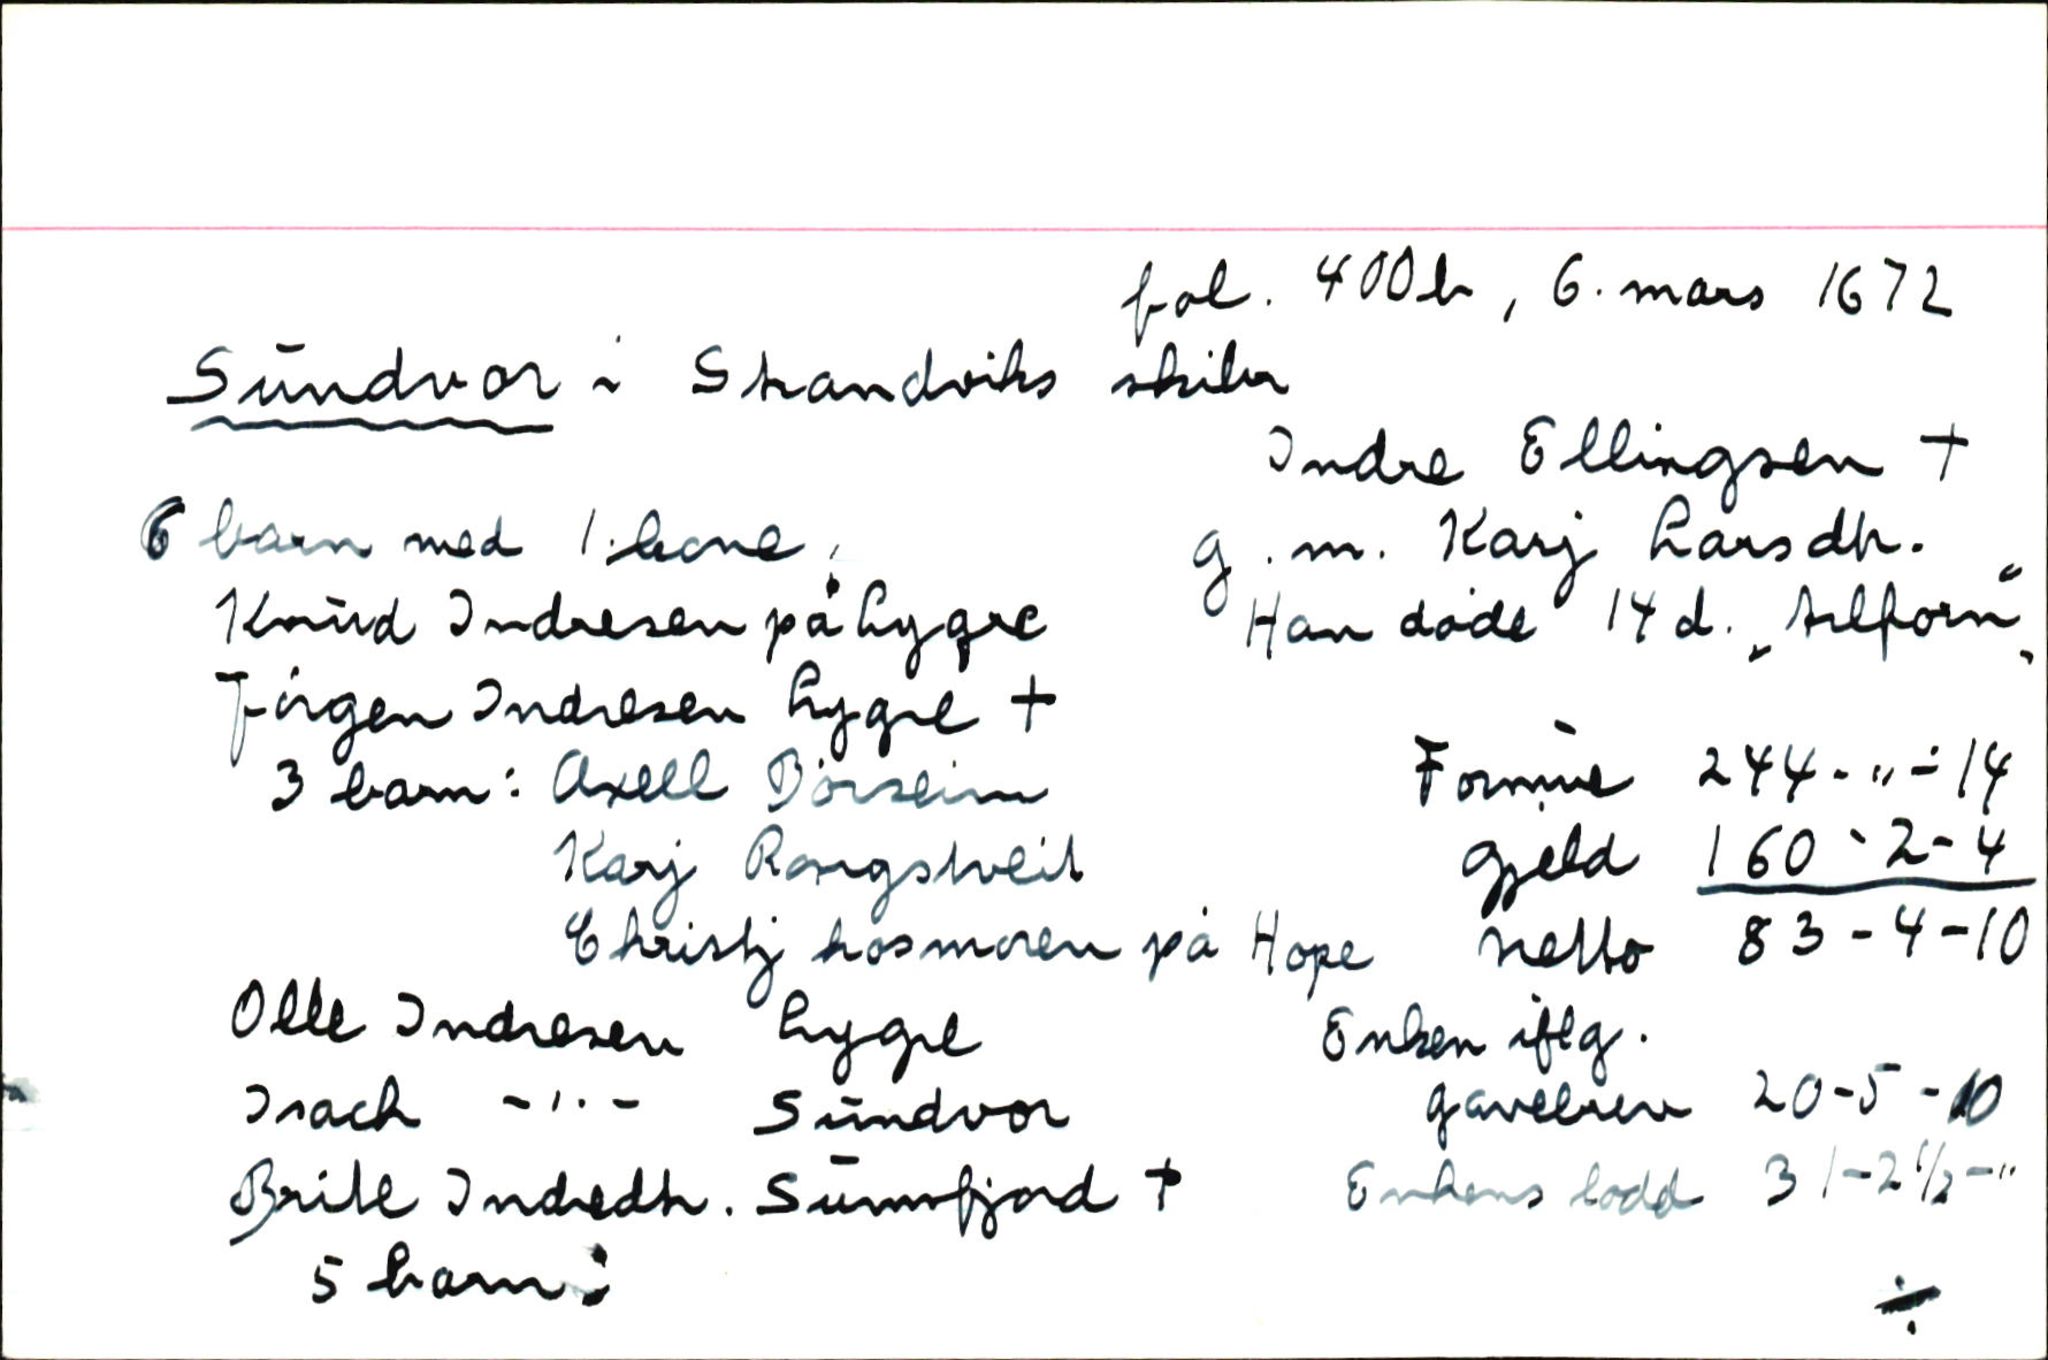 fol. 400b, 6. mars 1672
Sūndvor i Strandviks skibr
Indre Ellingsen +
6 barn med 1. kone,
g. m. Karj Larsdtr.
Knūd Indresen på Lygre
Han døde 14 d. "
Jørgen Indresen Lygre +
3 barn: Axell Børseim
Karj Rongstveit
Christj hosmoren på Hope
Olle Indresen Lygre
Isach -"- Sūndvor
Brite Indredtr. Sūnnfjord +
5 barn:
Formūe 244-"-14
Gjeld 160-2-4
netto 83-4-10
Enken iflg.
gavebrev 20-5-10
Enkens lodd 31-2 1/2-"
÷